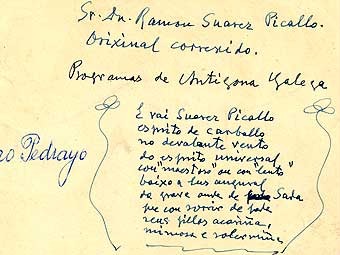 Sr. Dn. Ramon Suarez Picallo.
Orixinal correxido.
Programas de Antigona Galega
ro Pedrayo
E vai Suarez Picallo
esprito de carballo
no devalante vento
do esprito universal
con "maestoso" ou con "lento"
baixo a lus augural
da grave onda de Sada
que con sorrir de fada
seus fillos acariña,
mimosa e